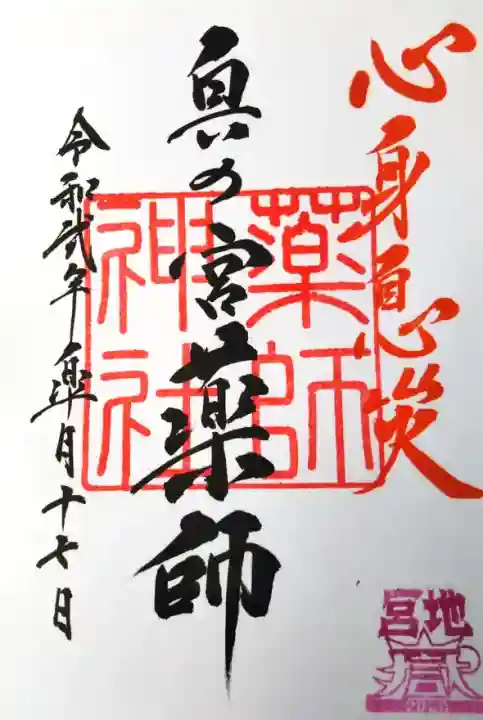 心身息災
奥の宮薬師
令和弐年皐月十七日
薬師
神社
宮地
嶽
2020